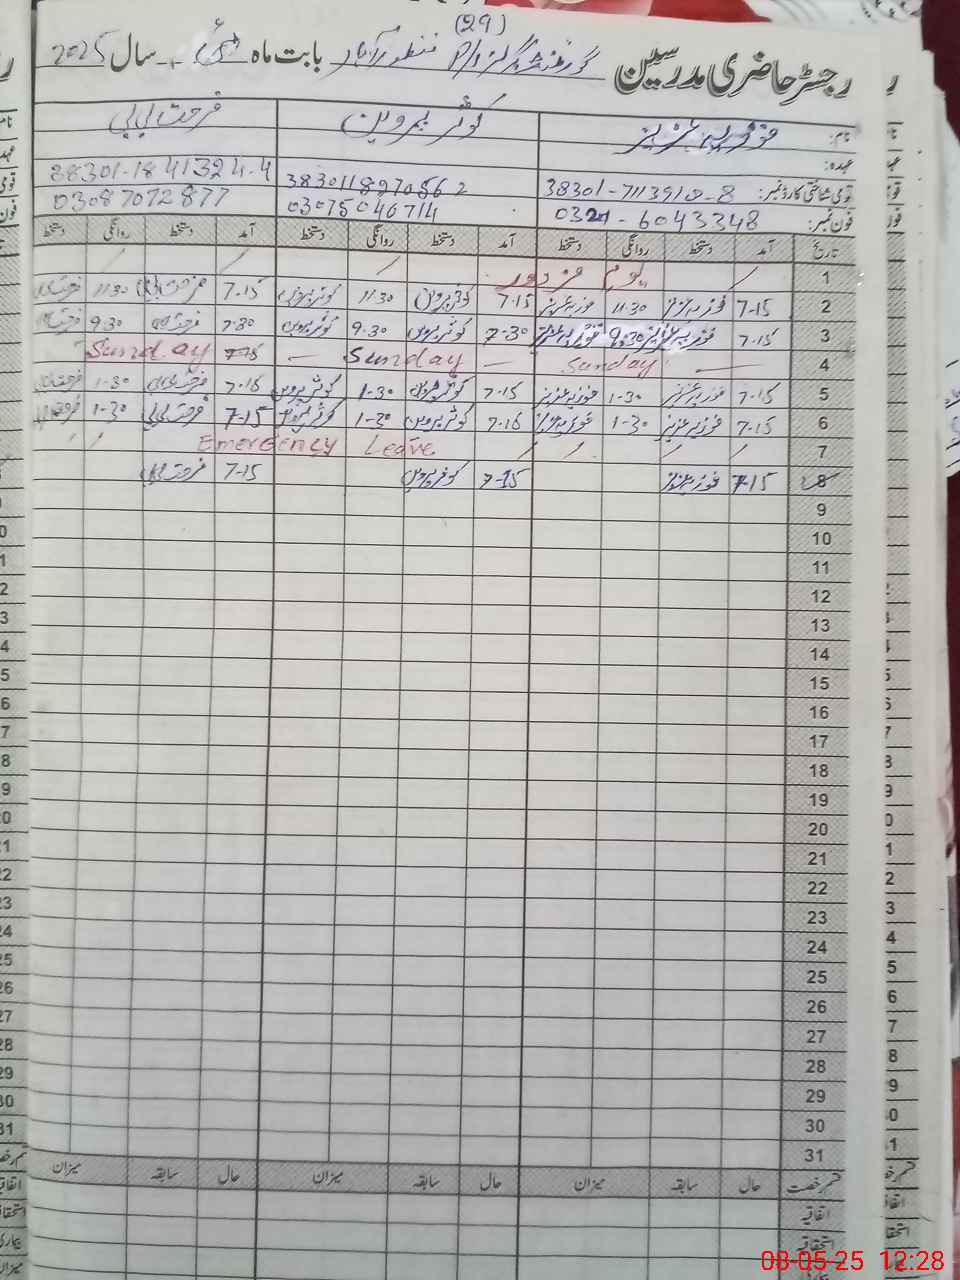 (29)
رجسٹر حاضری مدرسین گورنمنٹ گرلز بابت ماہ مئی سال 2025
نام: فوزیہ عزیز کوثر پروین فرحت بی بی
عہدہ:
قومی شناختی کارڈ نمبر: 38301-7113910-8 3830118970562 38301-1841324-4
فون نمبر: 0321-6043348 03075046714 03087072877
تاریخ آمد دستخط روانگی دستخط آمد دستخط روانگی دستخط آمد دستخط روانگی دستخط
1 یوم مزدور
2 7-15 فوزیہ عزیز 11:30 فوزیہ عزیز 7.15 کوثر پروین 11:30 کوثر پروین 7-15 فرحت بی بی 11:30
3 7-15 فوزیہ عزیز 9:30 فوزیہ عزیز 7-30 کوثر پروین 9.30 کوثر پروین 7-30 فرحت بی بی 9.30
4 Sunday Sunday Sunday
5 7-15 فوزیہ عزیز 1-30 فوزیہ عزیز 7-15 کوثر پروین 1-30 کوثر پروین 7-15 فرحت بی بی 1-30
6 7-15 فوزیہ عزیز 1-30 فوزیہ عزیز 7-15 کوثر پروین 1-30 کوثر پروین 7-15 فرحت بی بی 1-30
7 Emergency Leave
8 7-15 فوزیہ عزیز 7-15 کوثر پروین 7-15 فرحت بی بی
9
10
11
12
13
14
15
16
17
18
19
20
21
22
23
24
25
26
27
28
29
30
31
قسم رخصت حال سابقہ میزان حال سابقہ میزان حال سابقہ میزان
اتفاقیہ
استحقاقیہ
08-05-25 12:28